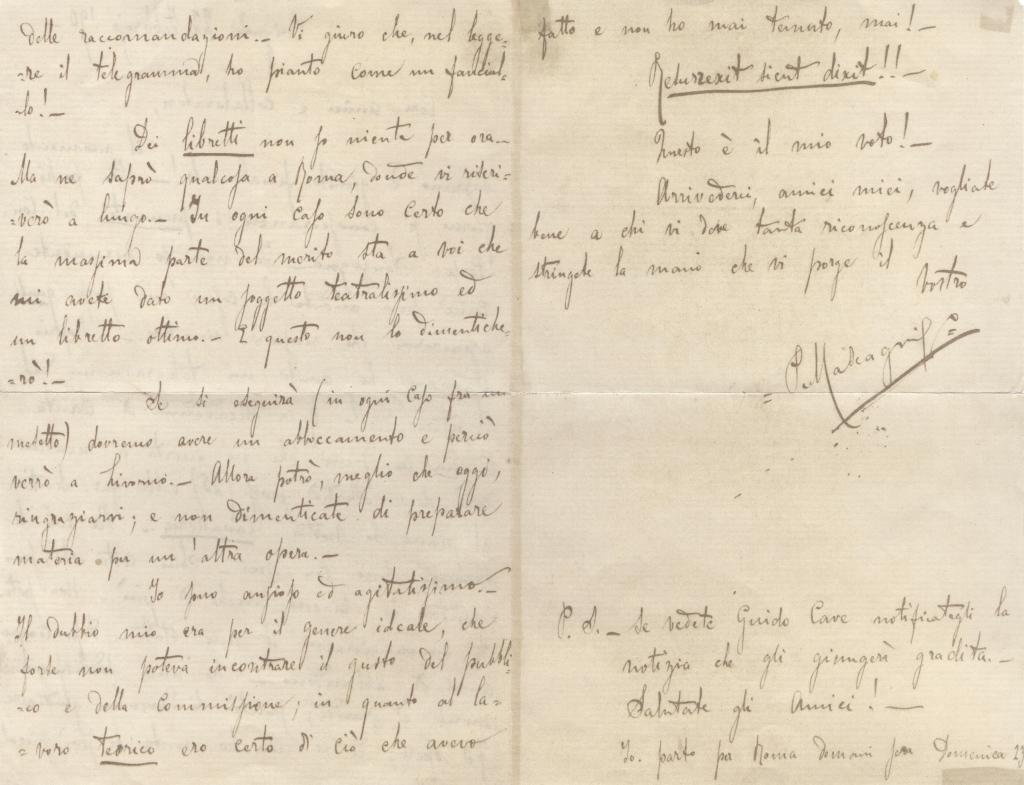 delle raccomandazioni.— Vi giuro che, nel legge-
-re il telegramma, ho pianto come un fanciul-
-lo!—
Dei libretti non so niente per ora.—
Ma ne saprò qualcosa a Roma, donde vi riscri-
-verò a lungo.— In ogni caso sono certo che
la massima parte del merito sta a voi che
mi avete dato un soggetto teatralissimo ed
un libretto ottimo.— E questo non lo dimentiche-
-rò!—
Se si eseguirà (in ogni caso fra un
mesetto) dovremo avere un abboccamento e perciò
verrò a Livorno.— Allora potrò, meglio che oggi,
ringraziarvi; e non dimenticate di preparare
materia per un'altra opera.—
Io sono ansioso ed agitatissimo.—
Il dubbio mio era per il genere ideale, che
forse non poteva incontrare il gusto del pubbli-
-co e della Commissione; in quanto al la-
-voro teorico ero certo di ciò che avevo
fatto e non ho mai temuto, mai!—
Resurrexit sicut dixit!!—
Questo è il mio voto!—
Arrivederci, amici miei, vogliate
bene a chi vi deve tanta riconoscenza e
stringete la mano che vi porge il vostro
P. Mascagni
P. S. — Se vedete Guido Cave notificategli la
notizia che gli giungerà gradita.—
Salutate gli Amici!—
Io parto per Roma domani sera Domenica 23